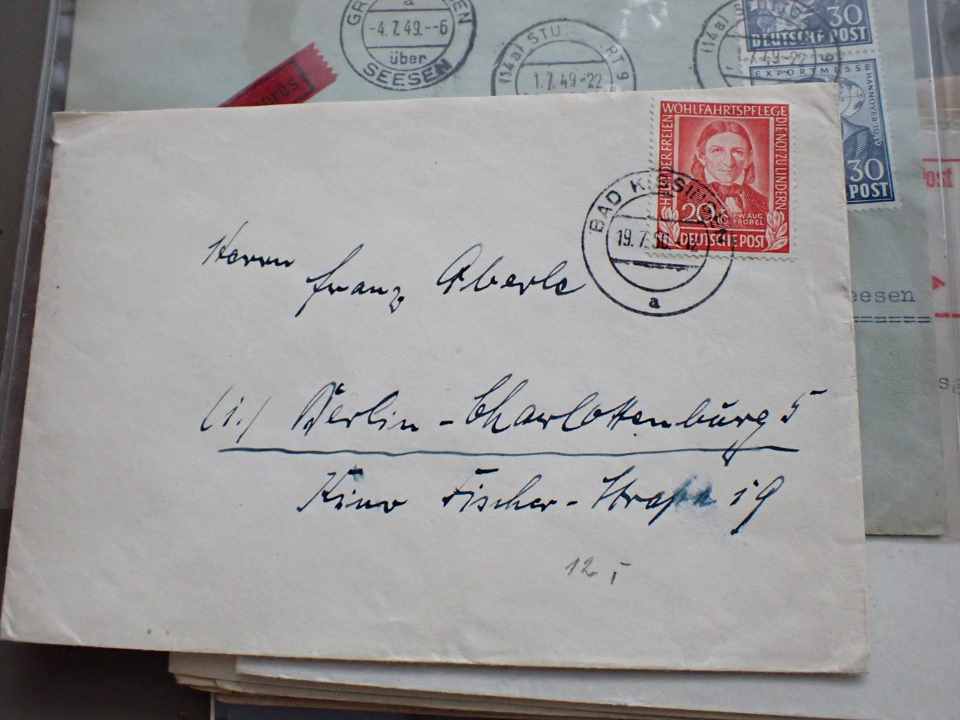 a
-4.7.49.--6
über
SEESEN
(14a) STU RT 9
1.7.49-22
(14a)
7.49-22
30
DEUTSCHE POST
EXPORTMESSE HANNOVER 1949
30
POST
WOHLFAHRTSPFLEGE DIE NOT ZU LINDERN
DER FREIEN
20
FR. W. AUG. FRÖBEL
DEUTSCHE POST
BAD KISSINGEN
19.7.50
a
Herrn
Franz Aberle
(1.) Berlin-Charlottenburg 5
Kuno Fischer-Straße 19
12 I
Post
eesen